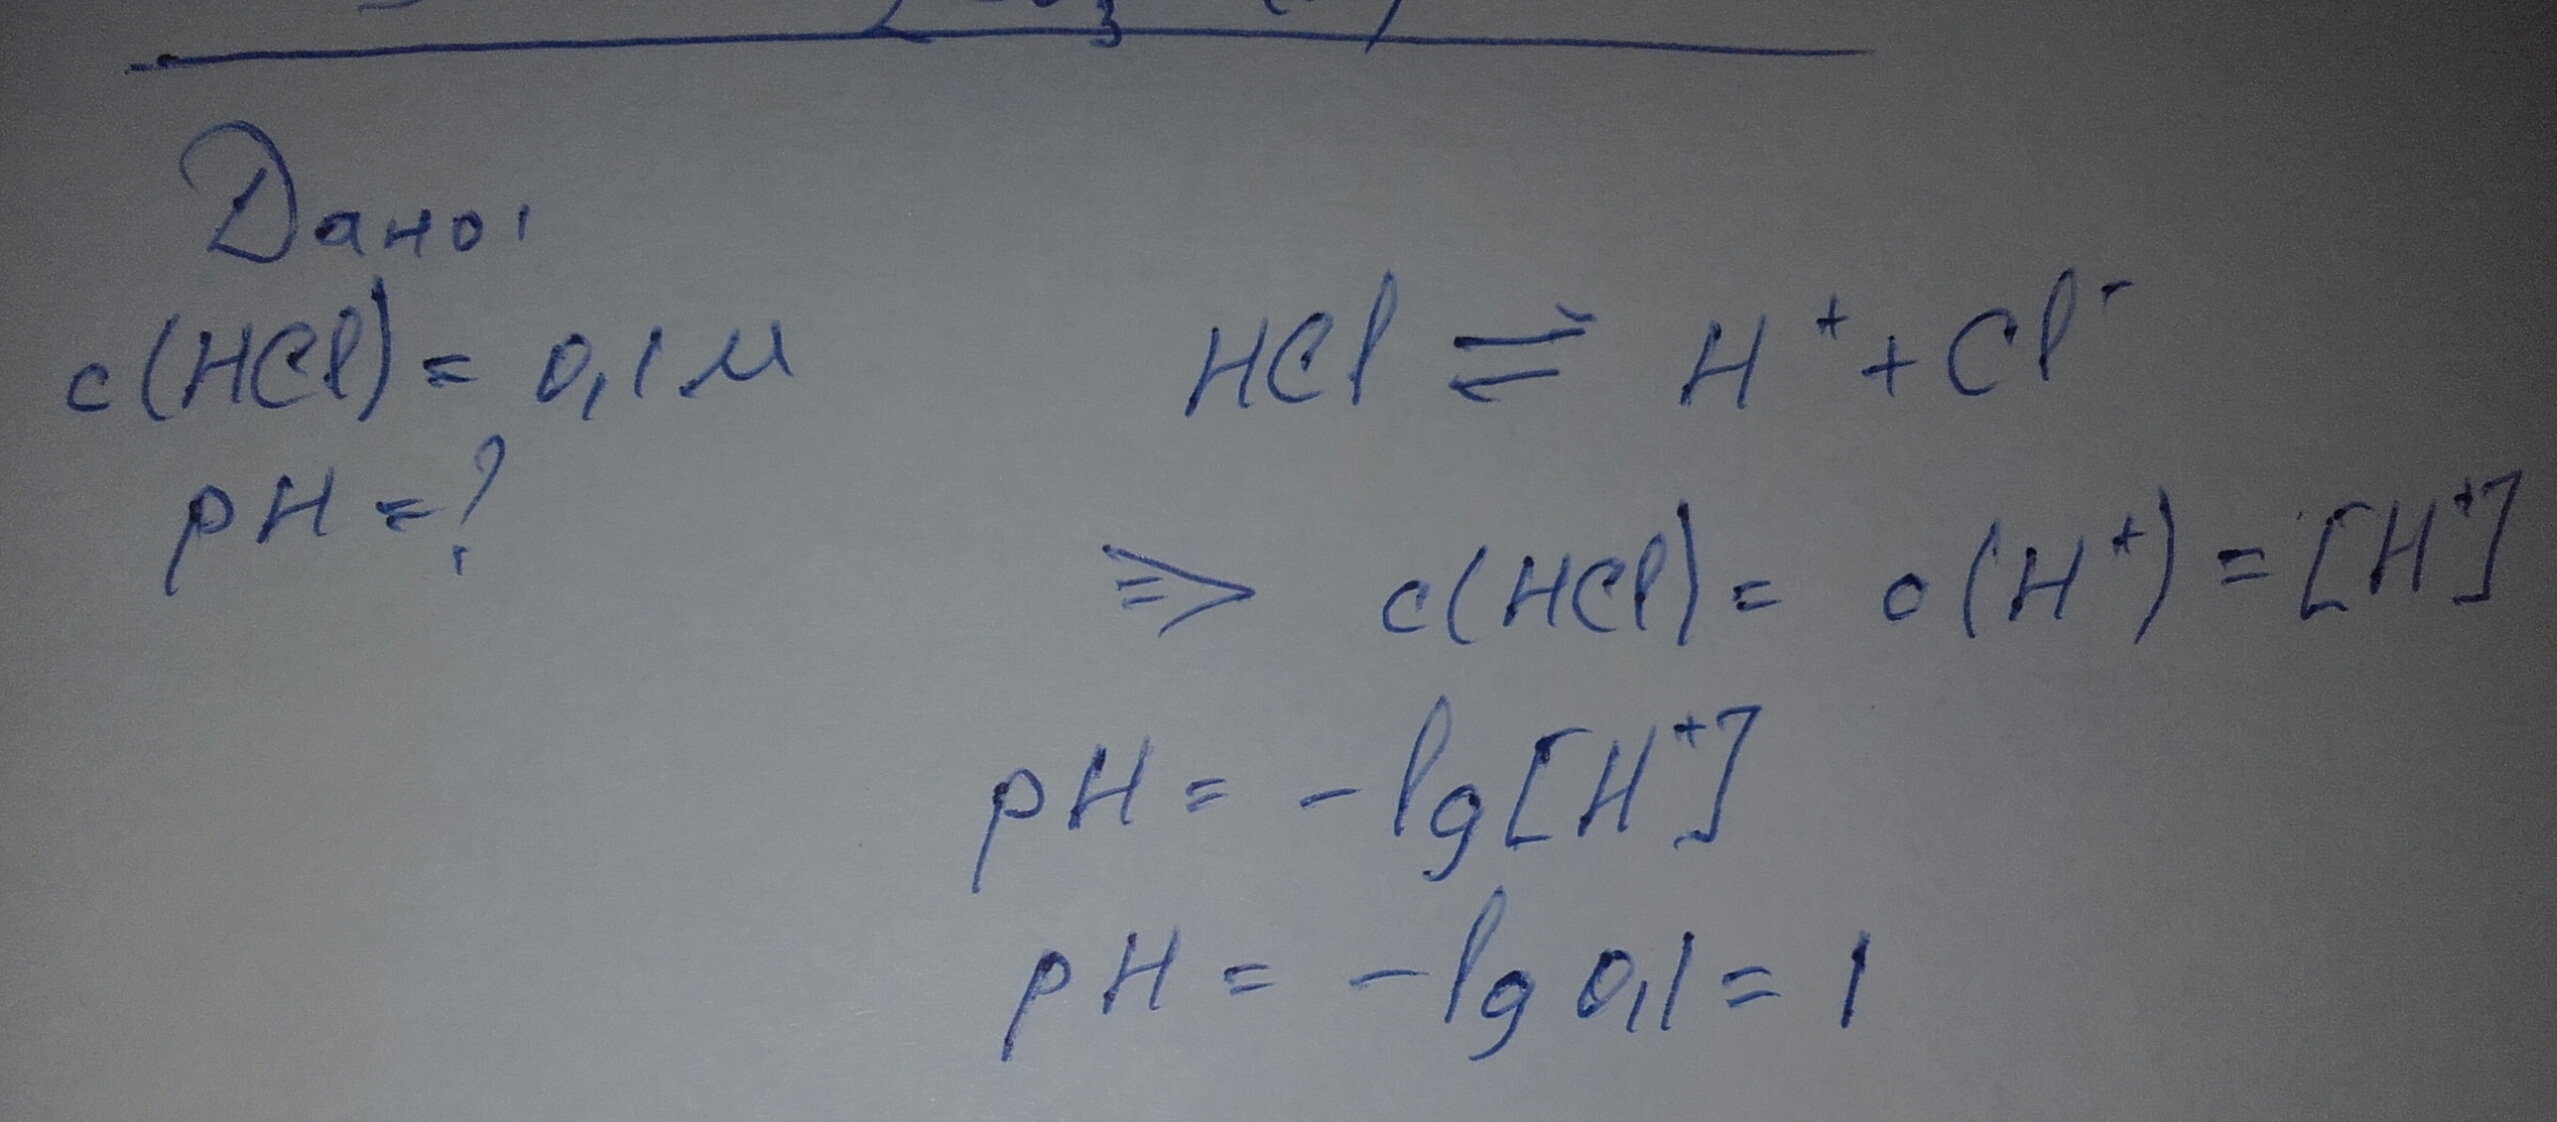 Дано:
c(HCl) = 0,1 М
pH = ?
HCl ⇌ H⁺ + Cl⁻
⇒ c(HCl) = c(H⁺) = [H⁺]
pH = -lg[H⁺]
pH = -lg 0,1 = 1